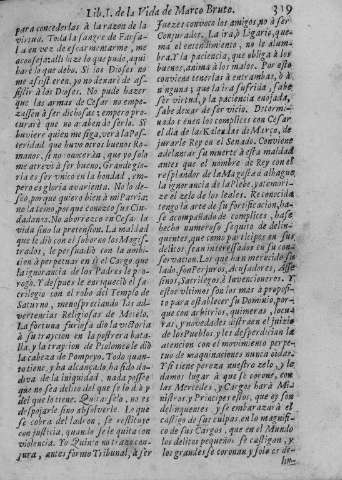 Lib. I. de la Vida de Marco Bruto. 319
para concederlas à la razon de la
virtud. Toda la sangre de Farsa-
lia en vez de escarmentarme, me
aconseja: allì hize lo que pudo, aqui
harè lo que debo. Si los Dioses no
me assistieren, no dexarè de as-
sistir à los Dioses. No pude hazer
que las armas de Cesar no empe-
zassen à ser dichosas; empero pro-
curarè que no acaben de serlo. Si
huviere quien me siga, verà la Pos-
teridad que huvo otros buenos Ro-
manos, si no conocerà, que yo solo
me atrevì à ser bueno. Grande glo-
ria es ser vnico en la bondad, em-
pero es gloria avarienta. No lo de-
seo, porque quiero bien à mi Patria;
no la temo, porque conozco sus Ciu-
dadanos. No aborrezco en Cesar la
vida sino la pretension. La maldad
que le diò con el soborno los Magis-
trados, le persuadiò con la ambi-
cion à perpetuar en sì el Cargo que
la ignorancia de los Padres le pro-
rogò. Y despues le enriqueciò el sa-
crilegio con el robo del Templo de
Saturno, menospreciando las ad-
vertencias Religiosas de Metelo.
La fortuna furiosa diò la victoria
à su traycion en la postrera bata-
lla, y la traycion de Ptolomeo le diò
la cabeza de Pompeyo. Todo quan-
to tiene, y ha alcançado, ha sido do-
diva de la iniquidad, nada possee
que no sea delito del que se lo dà y
del que lo tiene. Quitaselo, no es
despojarle sino absolverle. Lo que
se cobra del ladron, se restituye
con justicia, quando se le quita con
violencia. Yo Quinto no trazo con-
jura, antes formo Tribunal, à ser
Juezes convoco los amigos, no à ser
Conjurados. La ira, ò Ligario, que-
ma el entendimiento, no le alum-
bra. Y la paciencia, que obliga à los
buenos, anima à los malos. Por esto
conviene tenerlas à entrambas, ò à
ninguna; que la ira sufrida, sabe
ser virtud, y la paciencia enojada,
sabe dexar de ser vicio. Determi-
nado es en los complices con Cesar
el dia de las Kalendas de Março, de
jurarle Rey en el Senado. Conviene
adelantar su muerte à esta maldad
antes que el nombre de Rey con el
resplandor de la Magestad alhague
la ignorancia de la Plebe, y atemori-
ze el zelo de los leales. Reconocida
tengo la arte de su fortificacion, ha-
se acompañado de complices, hase
hecho numeroso sequito de delin-
quentes, que como participes en sus
delitos, sean interessados en su con-
servacion. Los que han merecido su
lado, son Perjuros, Acusadores, Asse-
sinos, Sacrilegos è Invencioneros. Y
estos vltimos son los mas à proposi-
to para establecer su Dominio, por-
que con arbitrios, quimeras, locu-
ras, y novedades distraen el juizio
de los Pueblos y les desperdician la
atencion con el movimiento perpe-
tuo de maquinaciones nunca oidas.
Y si tiene pereza nuestro zelo, y le
damos lugar à que se corone, con
las Mercedes, y Cargos harà Mi-
nistros y Principes essos, que oy son
delinquentes, y se embarazarà el
castigo de sus culpas en lo magnifi-
co de sus Cargos, que en el Mundo
los delitos pequeños se castigan, y
los grandes se coronan y solo es de-
lin-